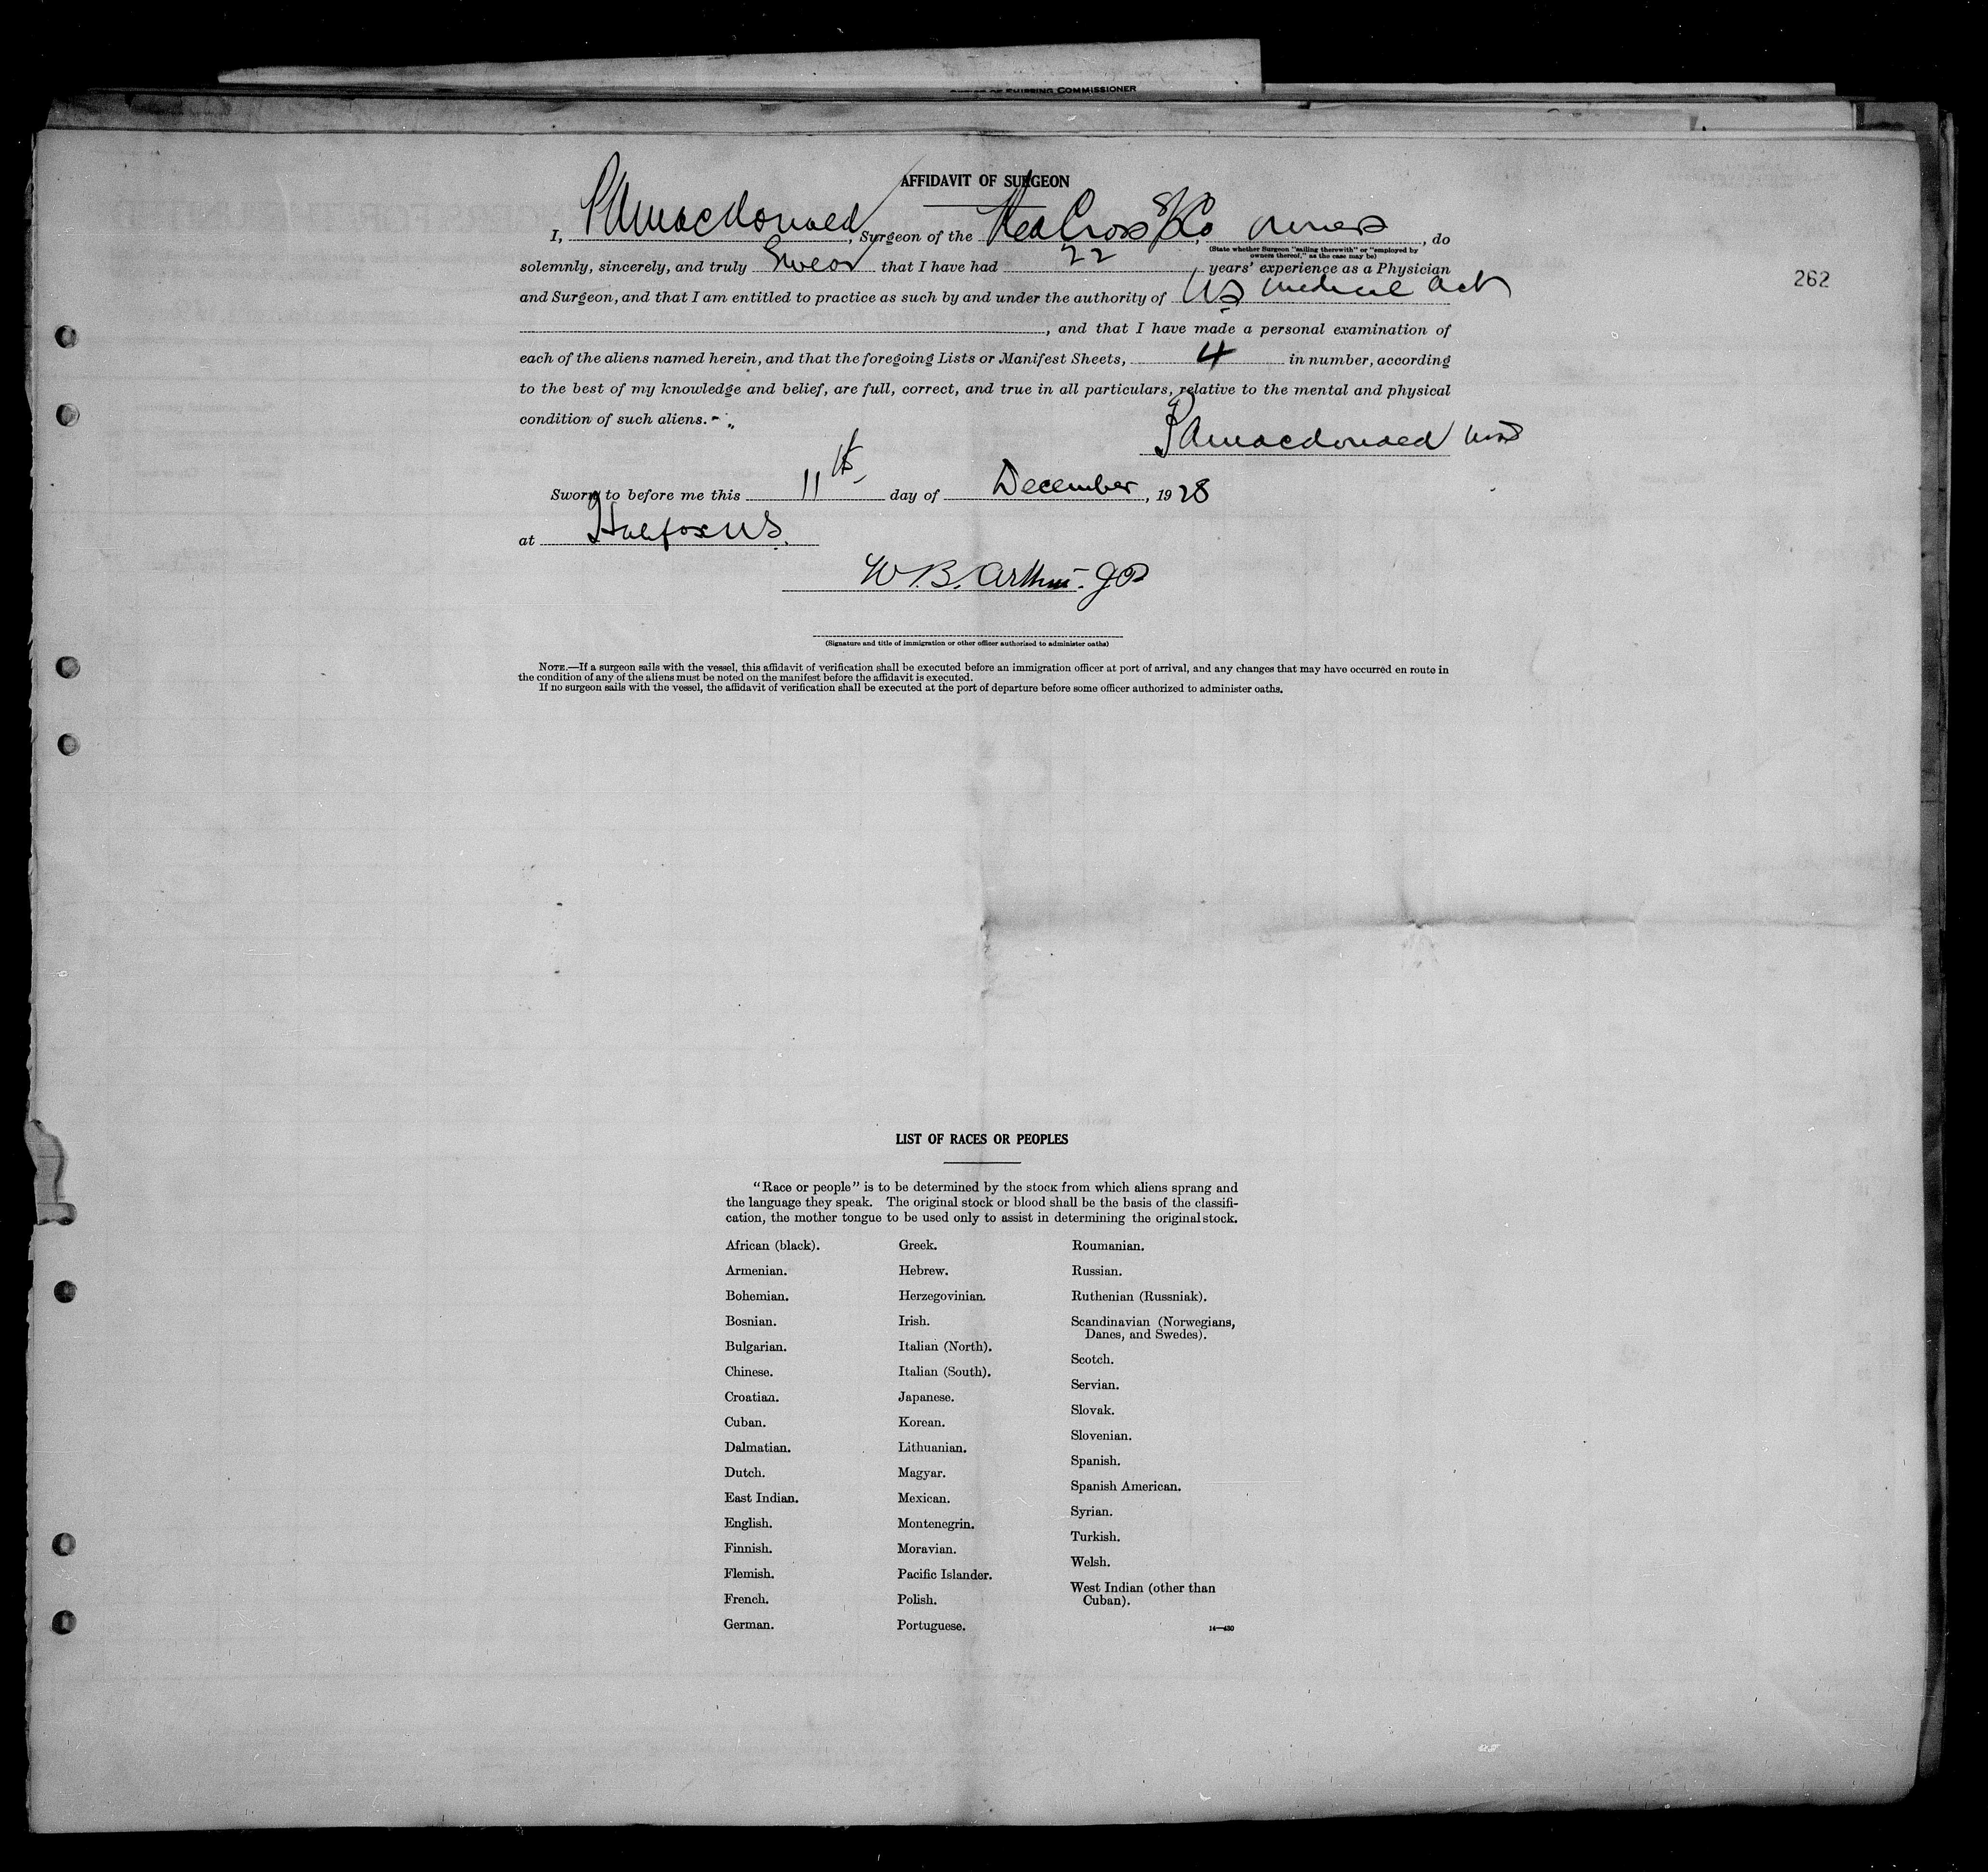 OFFICE OF SHIPPING COMMISSIONER
AFFIDAVIT OF SURGEON
I, P A Macdonald, Surgeon of the Red Cross S/S Co, owners, do
(State whether Surgeon "sailing therewith" or "employed by
owners thereof," as the case may be)
solemnly, sincerely, and truly Swear that I have had 22 years' experience as a Physician
and Surgeon, and that I am entitled to practice as such by and under the authority of NS medical act
262
, and that I have made a personal examination of
each of the aliens named herein, and that the foregoing Lists or Manifest Sheets, 4 in number, according
to the best of my knowledge and belief, are full, correct, and true in all particulars, relative to the mental and physical
condition of such aliens.
P A Macdonald MD
Sworn to before me this 11th day of December, 1928
at Halifax NS.
W. B. Arthur. JP
(Signature and title of immigration or other officer authorized to administer oaths)
NOTE.—If a surgeon sails with the vessel, this affidavit of verification shall be executed before an immigration officer at port of arrival, and any changes that may have occurred en route in
the condition of any of the aliens must be noted on the manifest before the affidavit is executed.
If no surgeon sails with the vessel, the affidavit of verification shall be executed at the port of departure before some officer authorized to administer oaths.
LIST OF RACES OR PEOPLES
"Race or people" is to be determined by the stock from which aliens sprang and
the language they speak. The original stock or blood shall be the basis of the classifi-
cation, the mother tongue to be used only to assist in determining the original stock.
African (black).
Armenian.
Bohemian.
Bosnian.
Bulgarian.
Chinese.
Croatian.
Cuban.
Dalmatian.
Dutch.
East Indian.
English.
Finnish.
Flemish.
French.
German.
Greek.
Hebrew.
Herzegovinian.
Irish.
Italian (North).
Italian (South).
Japanese.
Korean.
Lithuanian.
Magyar.
Mexican.
Montenegrin.
Moravian.
Pacific Islander.
Polish.
Portuguese.
Roumanian.
Russian.
Ruthenian (Russniak).
Scandinavian (Norwegians,
Danes, and Swedes).
Scotch.
Servian.
Slovak.
Slovenian.
Spanish.
Spanish American.
Syrian.
Turkish.
Welsh.
West Indian (other than
Cuban).
14—430